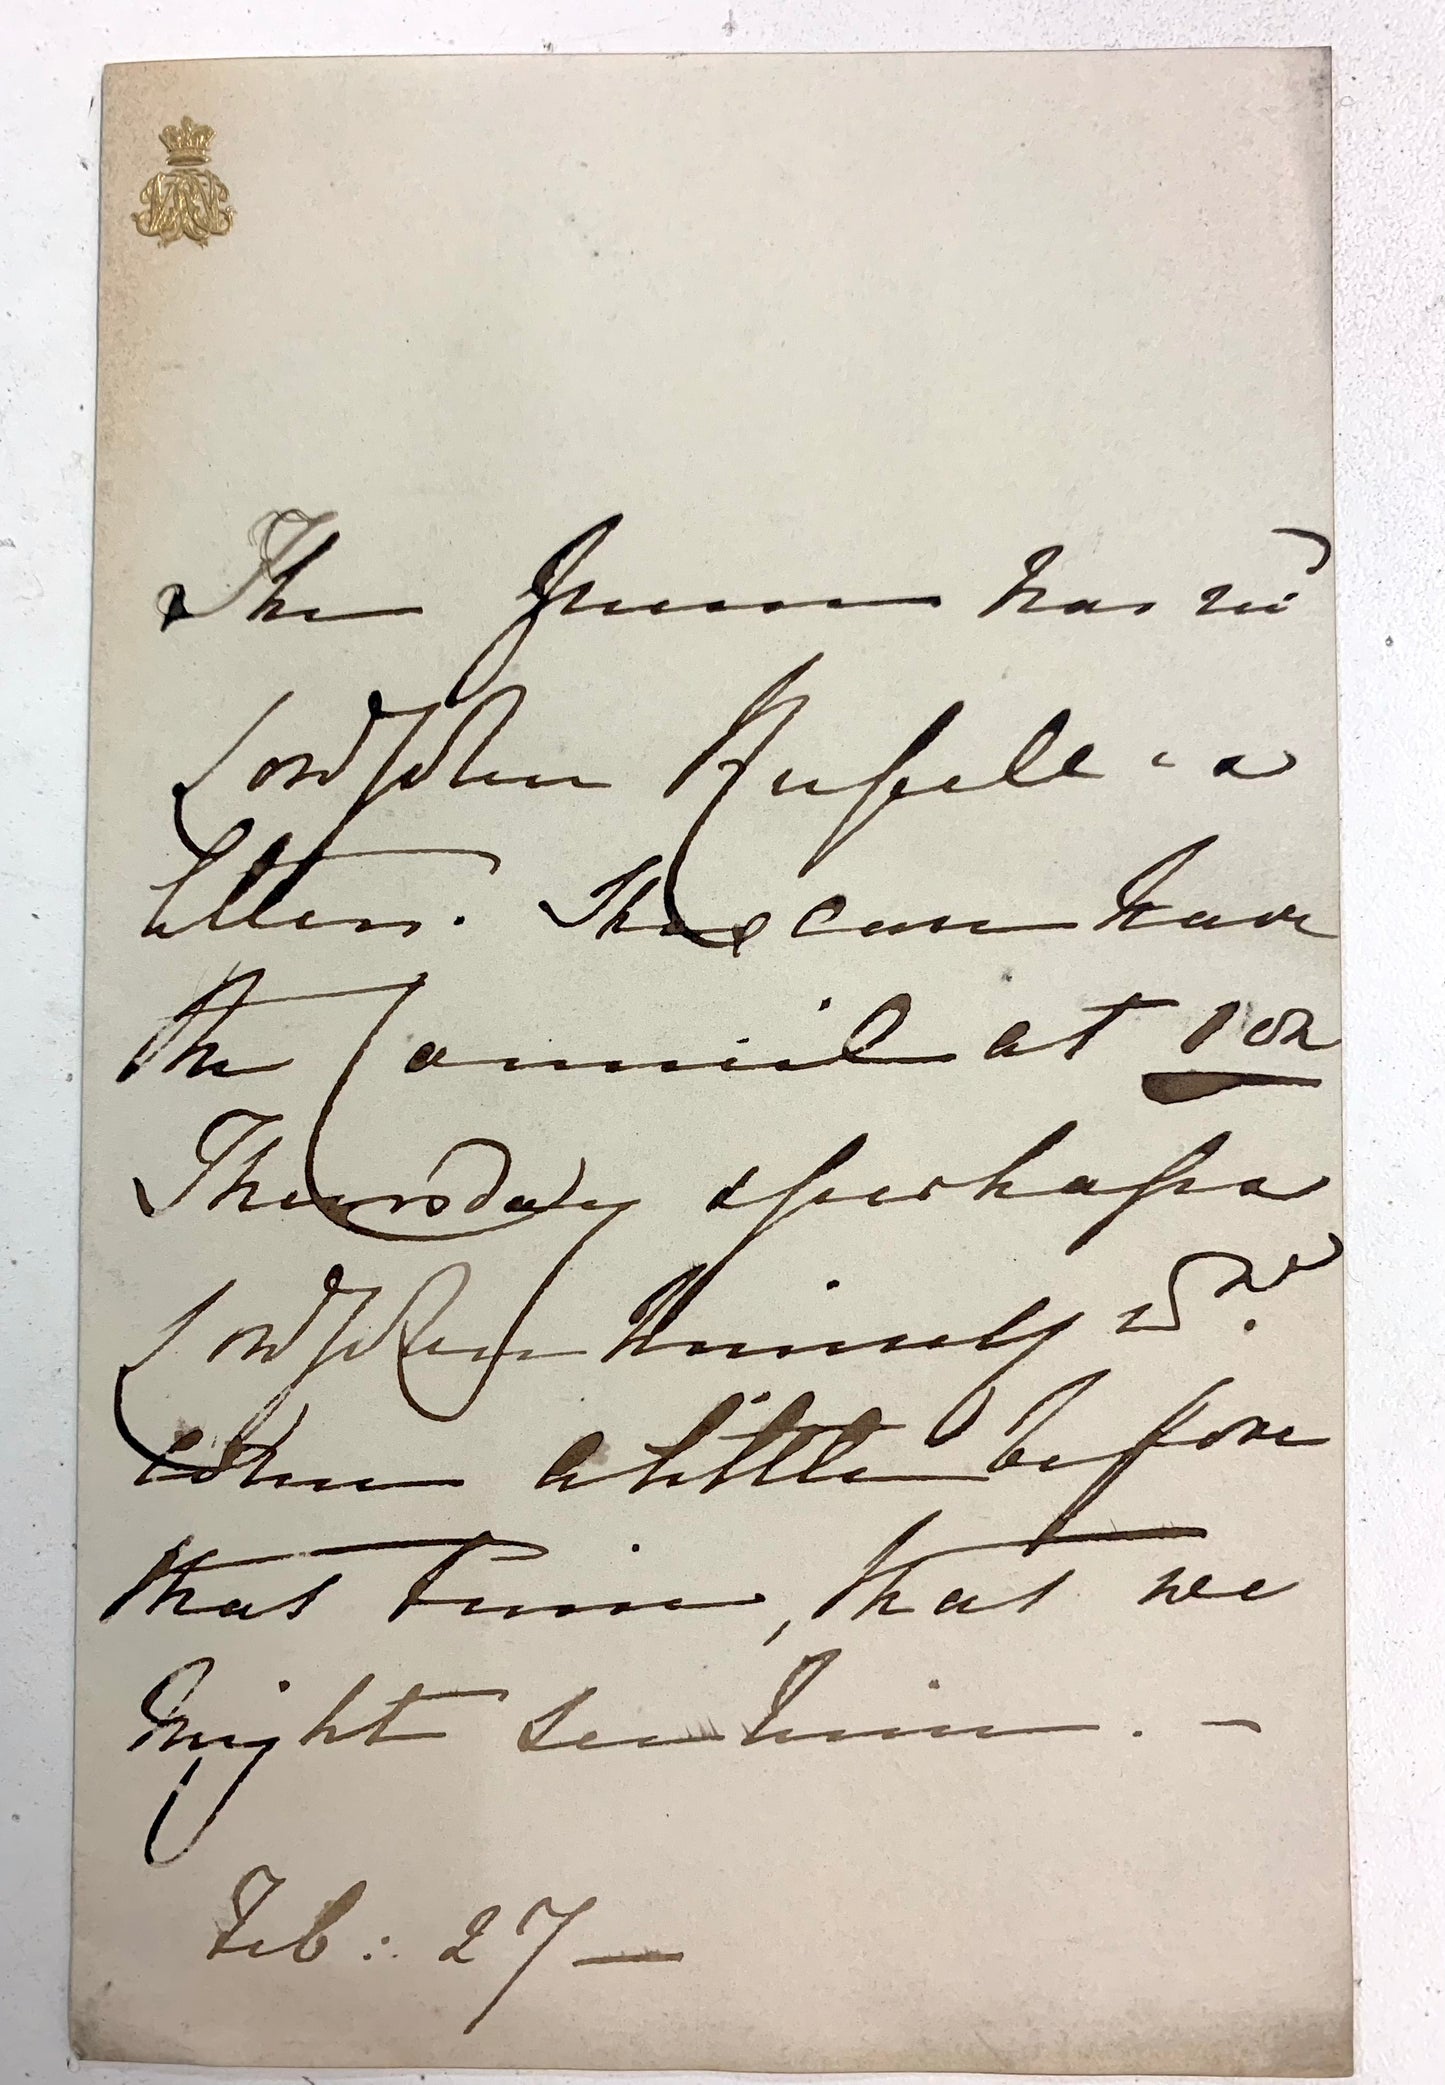 The Queen has recd
Lord John Russell's
letters. She can have
the Council at 1 on
Thursday & perhaps
Lord John himself wd.
come a little before
that time, that we
might see him. —
Feb: 27 —